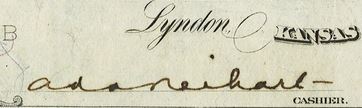 Lyndon, KANSAS
B
Ada Neihart
CASHIER.